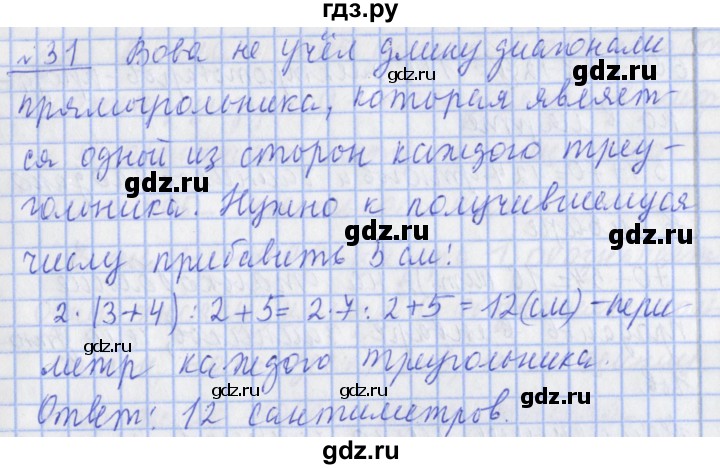 гдз.ру
№31 Вова не учёл длину диагонали
прямоугольника, которая являет-
ся одной из сторон каждого треу-
гольника. Нужно к получившемуся
числу прибавить 5 см!
2·(3+4):2+5=2·7:2+5=12(см)-пери-
метр каждого треугольника.
Ответ: 12 сантиметров.
gdz.ru
gdz.ru
gdz.ru
gdz.ru
gdz.ru
gdz.ru
gdz.ru
gdz.ru
gdz.ru
gdz.ru
gdz.ru
gdz.ru